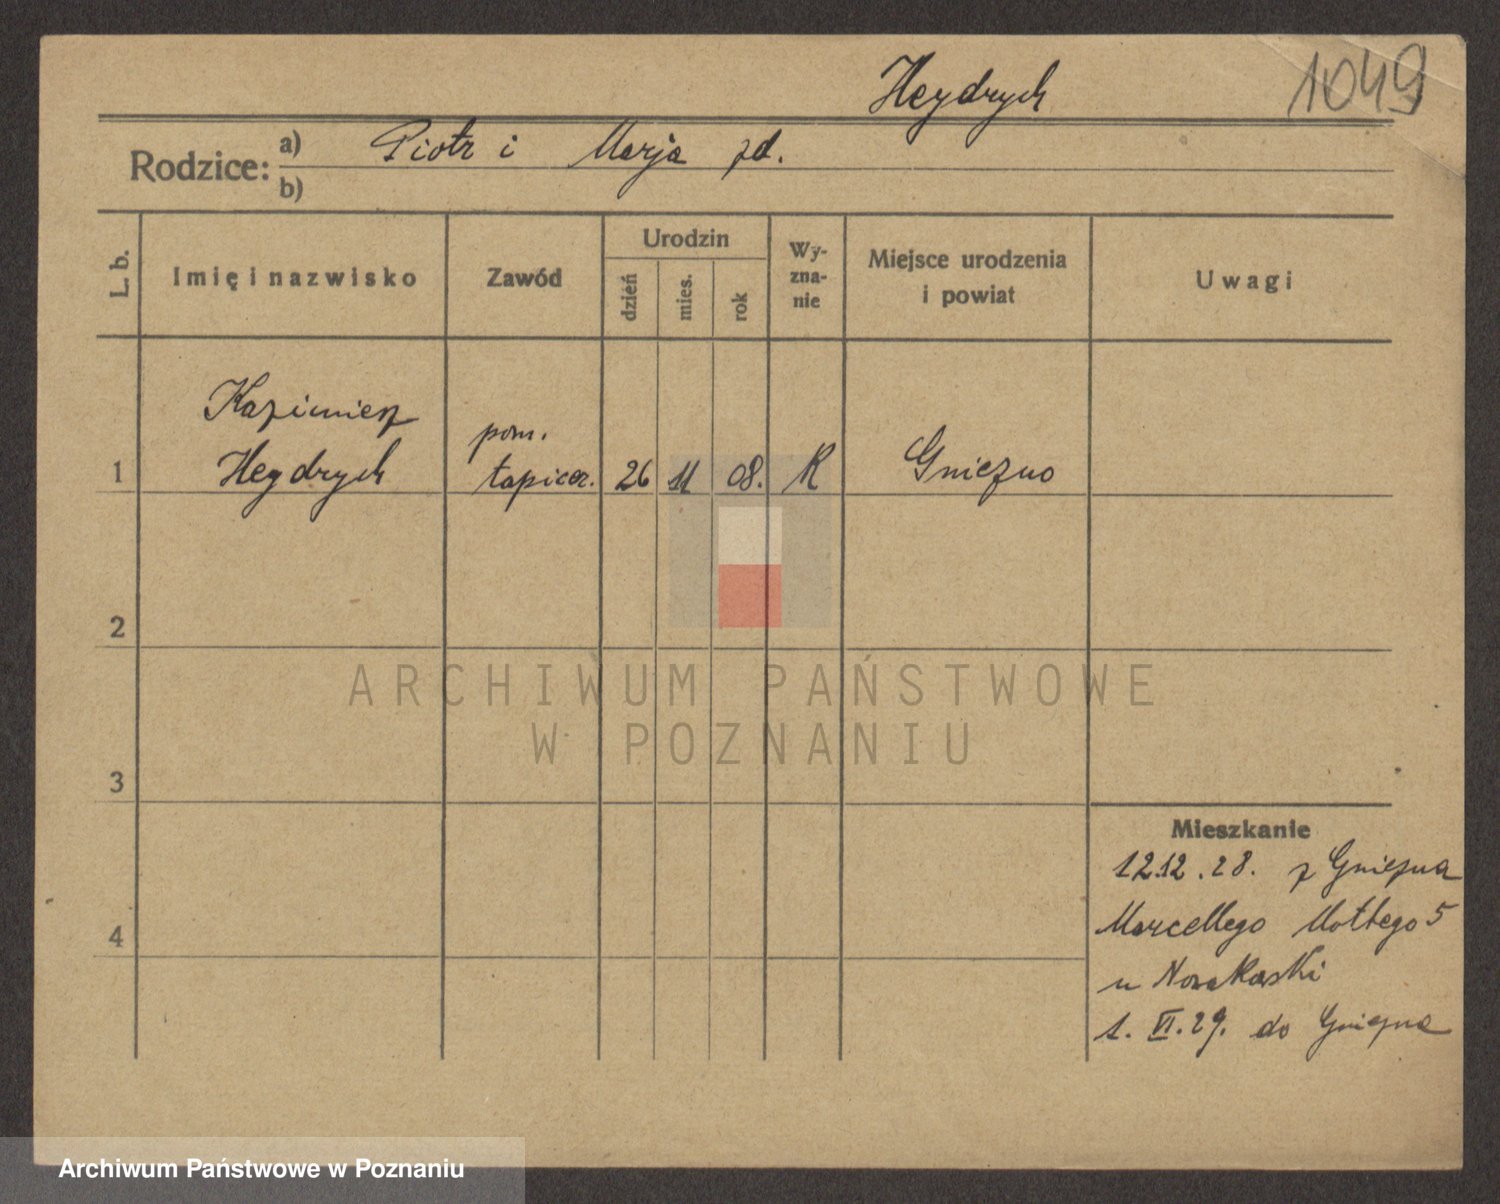 Heydrych
1049
Rodzice:
a) Piotr i Marja zd.
b)
L. b.
Imię i nazwisko
Zawód
Urodzin
dzień
mies.
rok
Wy-
zna-
nie
Miejsce urodzenia
i powiat
Uwagi
Kazimierz
pom.
1 Heydrych tapicer. 26 11 08. R Gniezno
2
ARCHIWUM PAŃSTWOWE
W POZNANIU
3
Mieszkanie
12.12.28. z Gniezna
Marcellego Mottego 5
4
u Nowakowski
1. VI. 29. do Gniezna
Archiwum Państwowe w Poznaniu